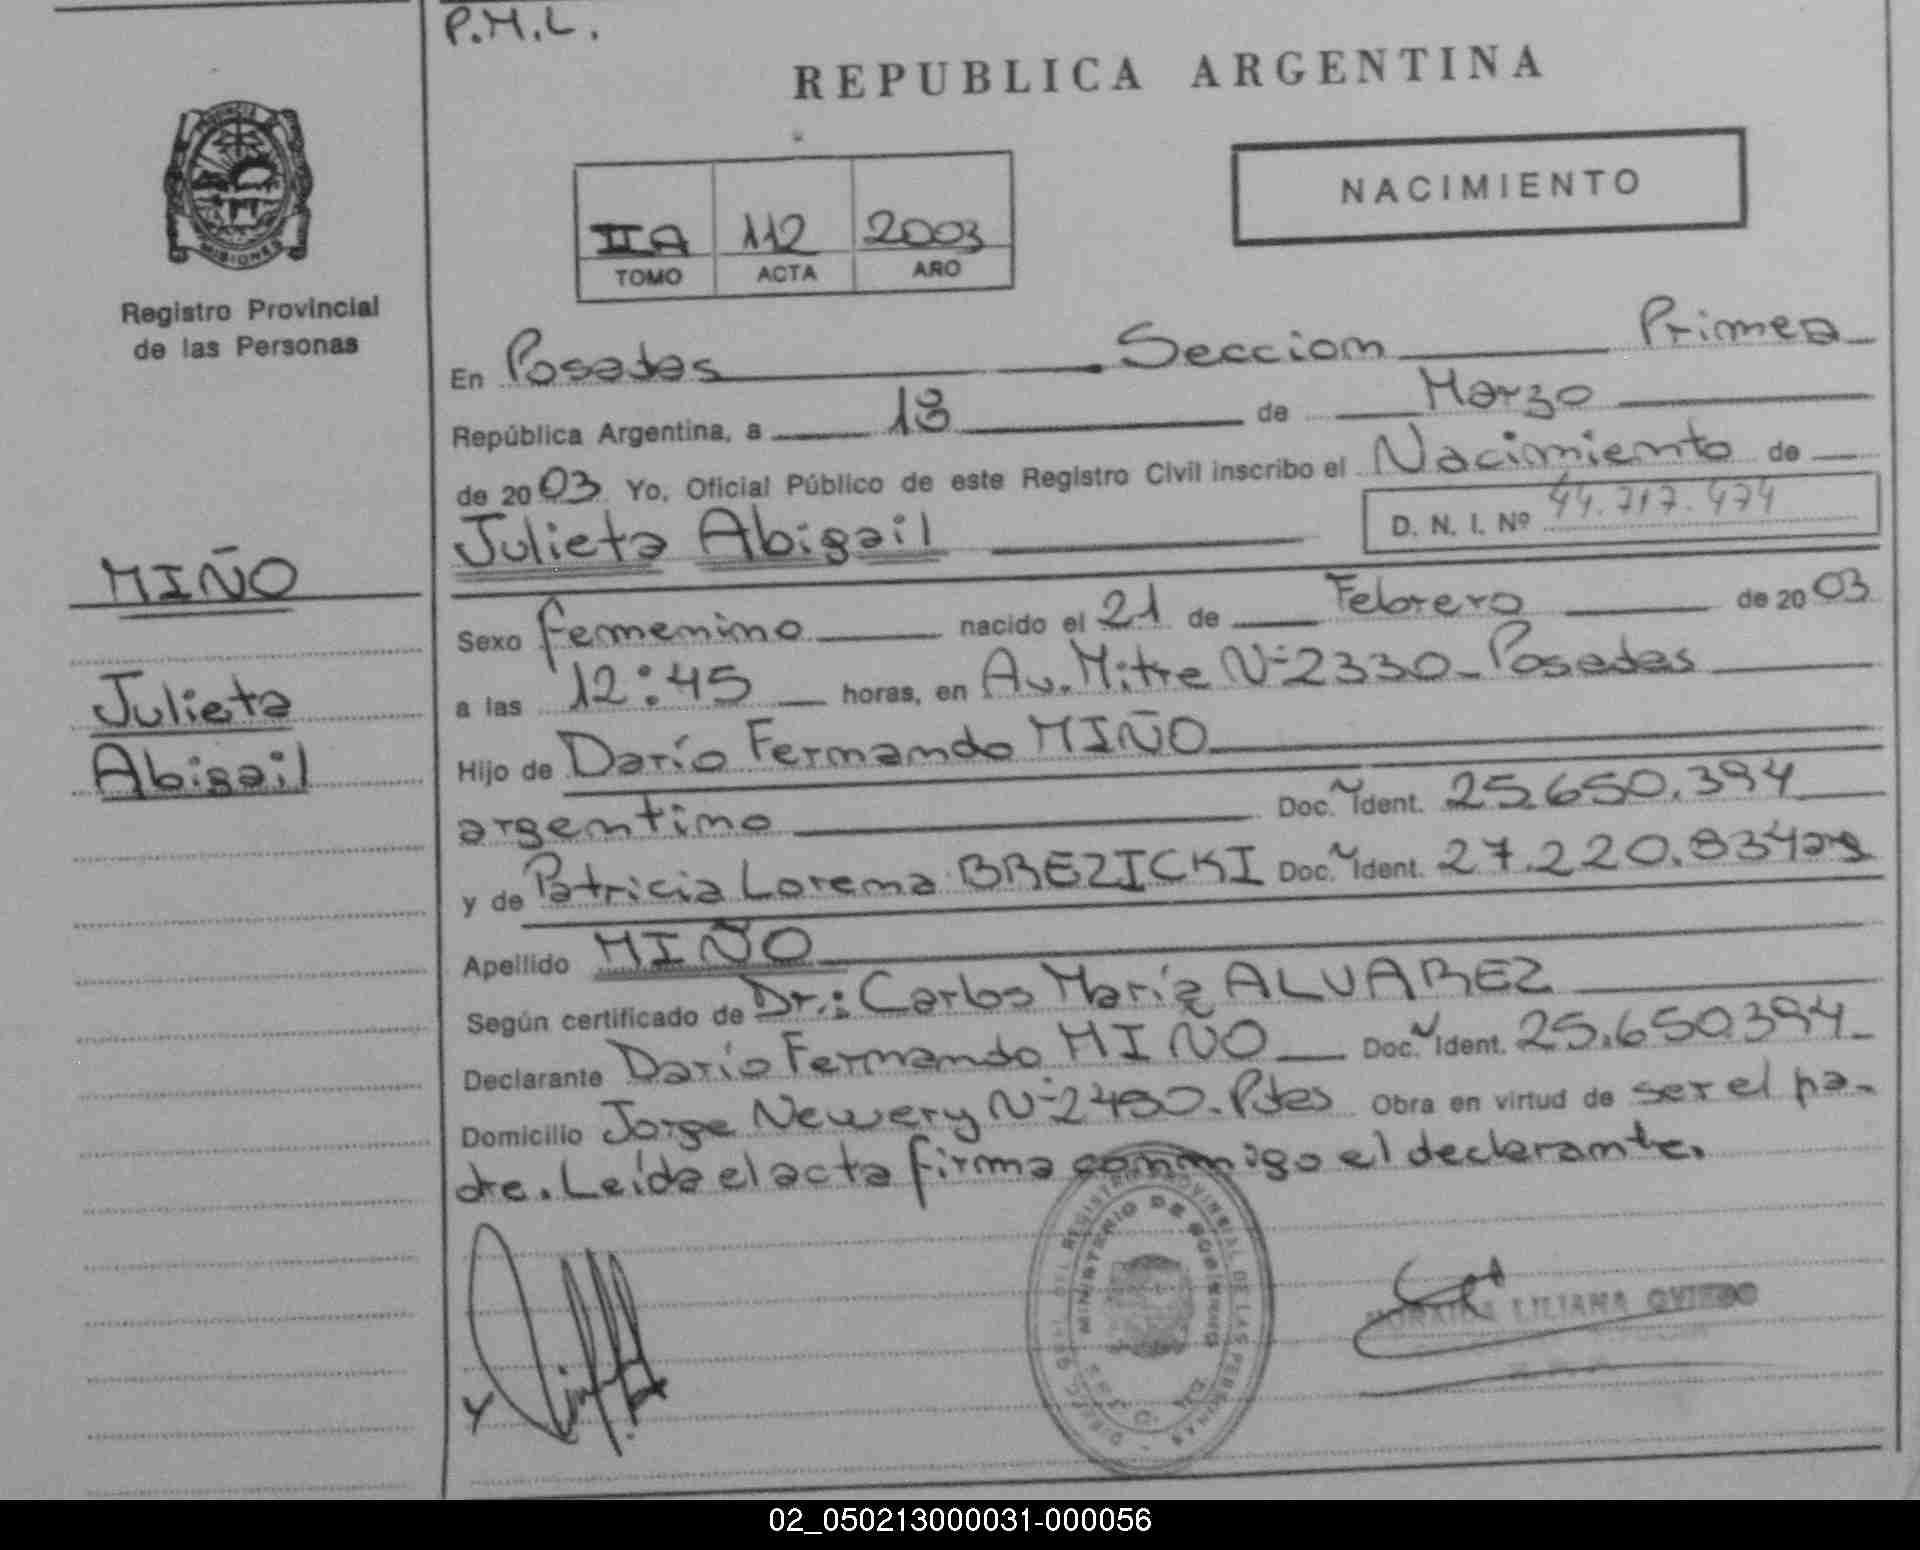 P.M.L.
REPUBLICA ARGENTINA
NACIMIENTO
IIA 112 2003
TOMO ACTA AÑO
MISIONES
Registro Provincial
de las Personas
En Posadas Seccion Primera
República Argentina, a 13 de Marzo
de 2003 Yo, Oficial Público de este Registro Civil inscribo el Nacimiento de
Julieta Abigail
D. N. I. Nº 44.717.474
MIÑO
Julieta
Abigail
Sexo femenino nacido el 21 de Febrero de 2003
a las 12:45 horas, en Av. Mitre Nº 2330 - Posadas
Hijo de Darío Fernando MIÑO
argentino Doc. Ident. 25.650.394
y de Patricia Lorena BREZICKI Doc. Ident. 27.220.834 arg
Apellido MIÑO
Según certificado de Dr.: Carlos María ALVAREZ
Declarante Darío Fernando MIÑO Doc. Ident. 25.650394
Domicilio Jorge Newery Nº 2450. Pdas Obra en virtud de ser el pa-
dre. Leída el acta firma conmigo el declarante.
MINISTERIO DE GOBIERNO
LILIANA OVIEDO
02_050213000031-000056